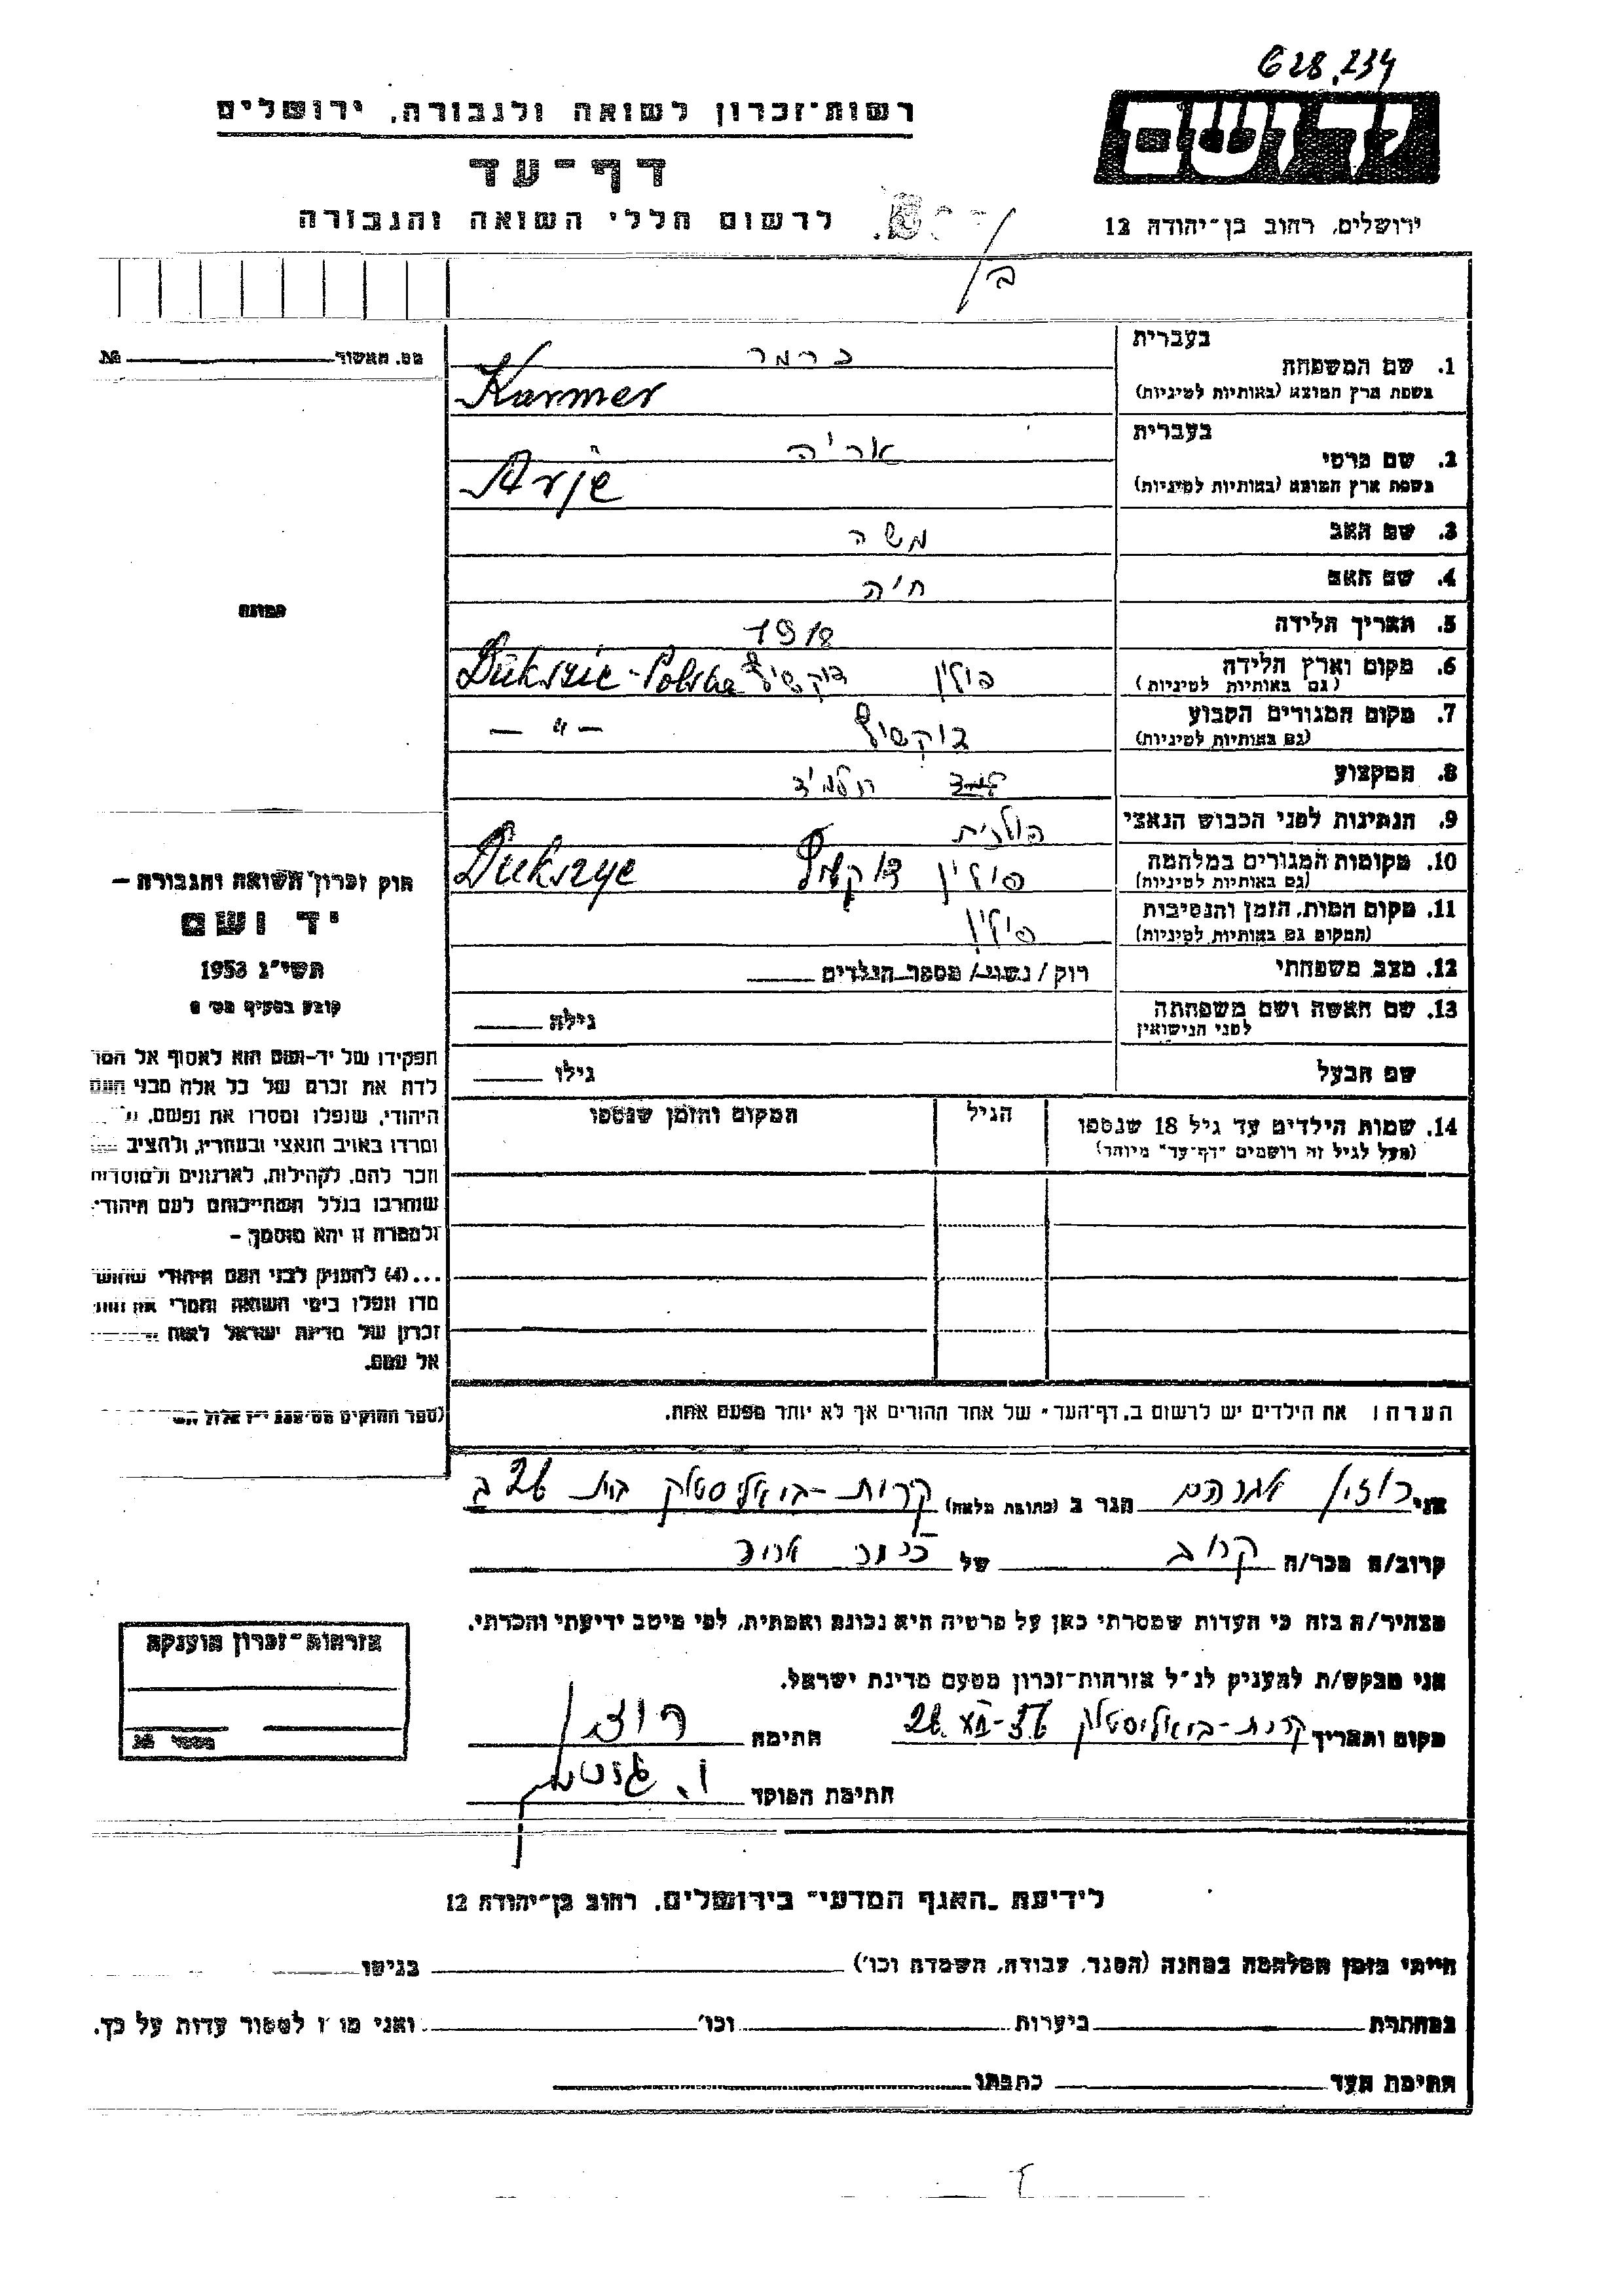 628.234
יד ושם
רשות-זכרון לשואה ולגבורה, ירושלים
דף-עד
לרשום חללי השואה והגבורה
ירושלים, רחוב בן-יהודה 12
ב/
מס. מאשור №
בעברית
1. שם המשפחה כרמר
בשפת ארץ המוצא (באותיות לטיניות) Karmer
בעברית
2. שם פרטי אריה
בשפת ארץ המוצא (באותיות לטיניות) Arje
3. שם האב משה
4. שם האם חיה
5. תאריך הלידה 1918
6. מקום וארץ הלידה פולין דוקשיץ Dukszie-Polska
(גם באותיות לטיניות)
7. מקום המגורים הקבוע דוקשיץ — " —
(גם באותיות לטיניות)
8. המקצוע תלמיד
9. הנתינות לפני הכבוש הנאצי פולנית
10. מקומות המגורים במלחמה פולין Dukszye
(גם באותיות לטיניות)
11. מקום המות, הזמן והנסיבות פולין
(המקום גם באותיות לטיניות)
12. מצב משפחתי רוק / נשוי / מספר הילדים
13. שם האשה ושם משפחתה גילה
לפני הנישואין
שם הבעל גילו
14. שמות הילדים עד גיל 18 שנספו הגיל המקום והזמן שנספו
(מעל לגיל זה רושמים "דף-עד" מיוחד)
הערה: את הילדים יש לרשום ב"דף-העד" של אחד ההורים אך לא יותר מפעם אחת.
תמונה
חוק זכרון השואה והגבורה —
יד ושם
תשי"ג 1953
קובע בסעיף מס' 2
תפקידו של יד-ושם הוא לאסוף אל המו
לדת את זכרם של כל אלה מבני העם
היהודי, שנפלו ומסרו את נפשם,
ומרדו באויב הנאצי ובעוזריו, ולהציב
זכר להם, לקהילות, לארגונים ולמוסדות
שנחרבו בגלל השתייכותם לעם היהודי
ולמטרה זו יהא מוסמך —
...(4) להעניק לבני העם היהודי שהוש
מדו ונפלו בימי השואה והמרי
זכרון של מדינת ישראל לאות
אל עמם.
(ספר החוקים מס'
אני רוזין אברהם הגר ב (כתובת מלאה) קרית-ביאליסטוק בית 26 ב
קרוב/ה מכר/ה קרוב של כרמר אריה
מצהיר/ה בזה כי העדות שמסרתי כאן על פרטיה היא נכונה ואמתית, לפי מיטב ידיעתי והכרתי.
אני מבקש/ת להעניק לנ"ל אזרחות-זכרון מטעם מדינת ישראל.
מקום ותאריך קרית-ביאליסטוק 26 XII-56 חתימה רוזין
חתימת הפוקד
אזרחות-זכרון מוענקת
מספר №
לידיעת "האגף המדעי" בירושלים, רחוב בן-יהודה 12
הייתי בזמן המלחמה במחנה (הסגר, עבודה, השמדה וכו') בגיטו
במחתרת ביערות וכו' ואני מו ז למסור עדות על כך.
חתימת העד כתבתו